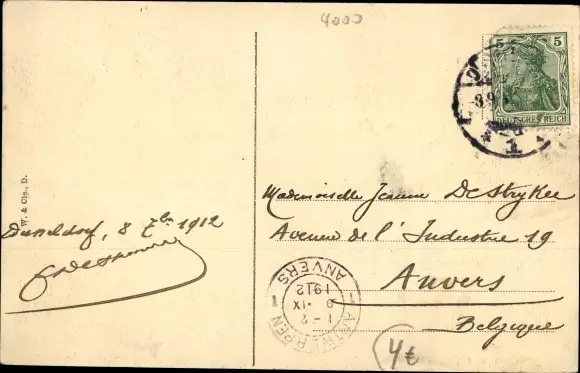 4000
5 5
DEUTSCHES REICH
8.9.
1
W. & Cip., D.
Düsseldorf, 8 7bre 1912
Mademoiselle Jeanne De Strykee
Avenue de l'Industrie 19
Anvers
Belgique
ANTWERPEN
1-2
9 IX
1912
ANVERS
4€